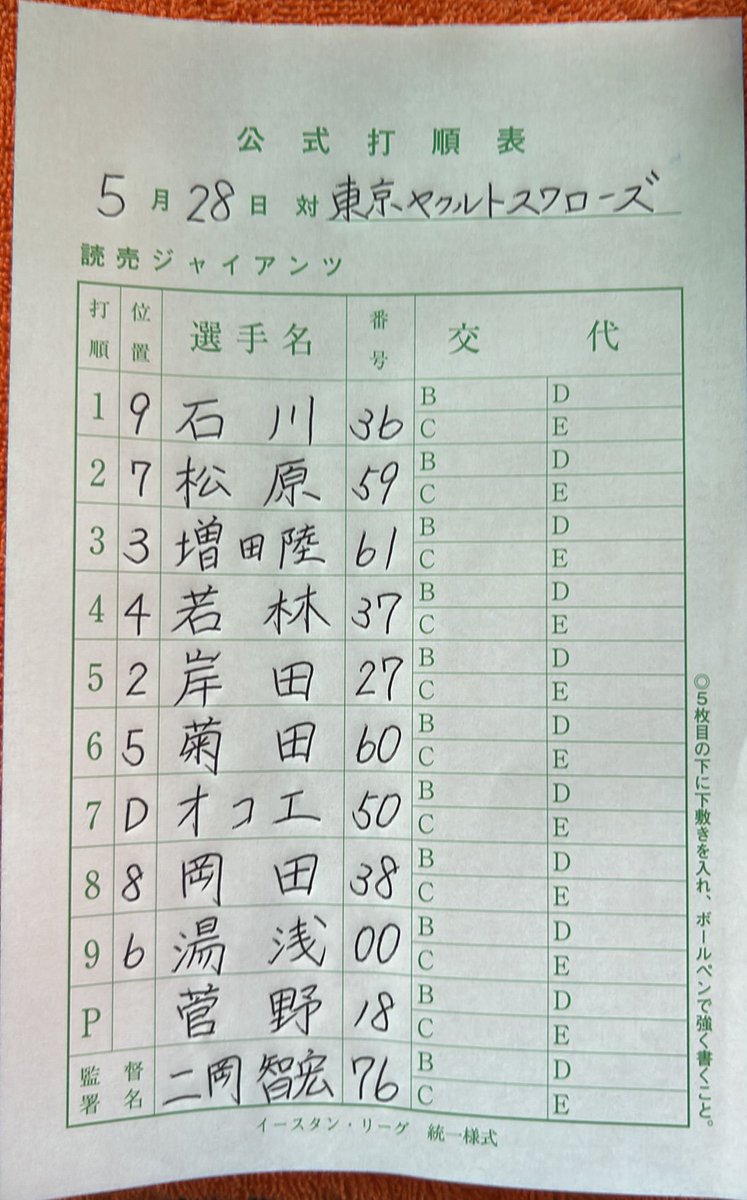 公式打順表
5月28日 対 東京ヤクルトスワローズ
読売ジャイアンツ
打順 位置 選手名 番号 交代
1 9 石川 36 B D C E
2 7 松原 59 B D C E
3 3 増田陸 61 B D C E
4 4 若林 37 B D C E
5 2 岸田 27 B D C E
6 5 菊田 60 B D C E
7 D オコエ 50 B D C E
8 8 岡田 38 B D C E
9 6 湯浅 00 B D C E
P 菅野 18 B D C E
監督署名 二岡智宏 76 B D C E
イースタン・リーグ 統一様式
◎5枚目の下に下敷きを入れ、ボールペンで強く書くこと。